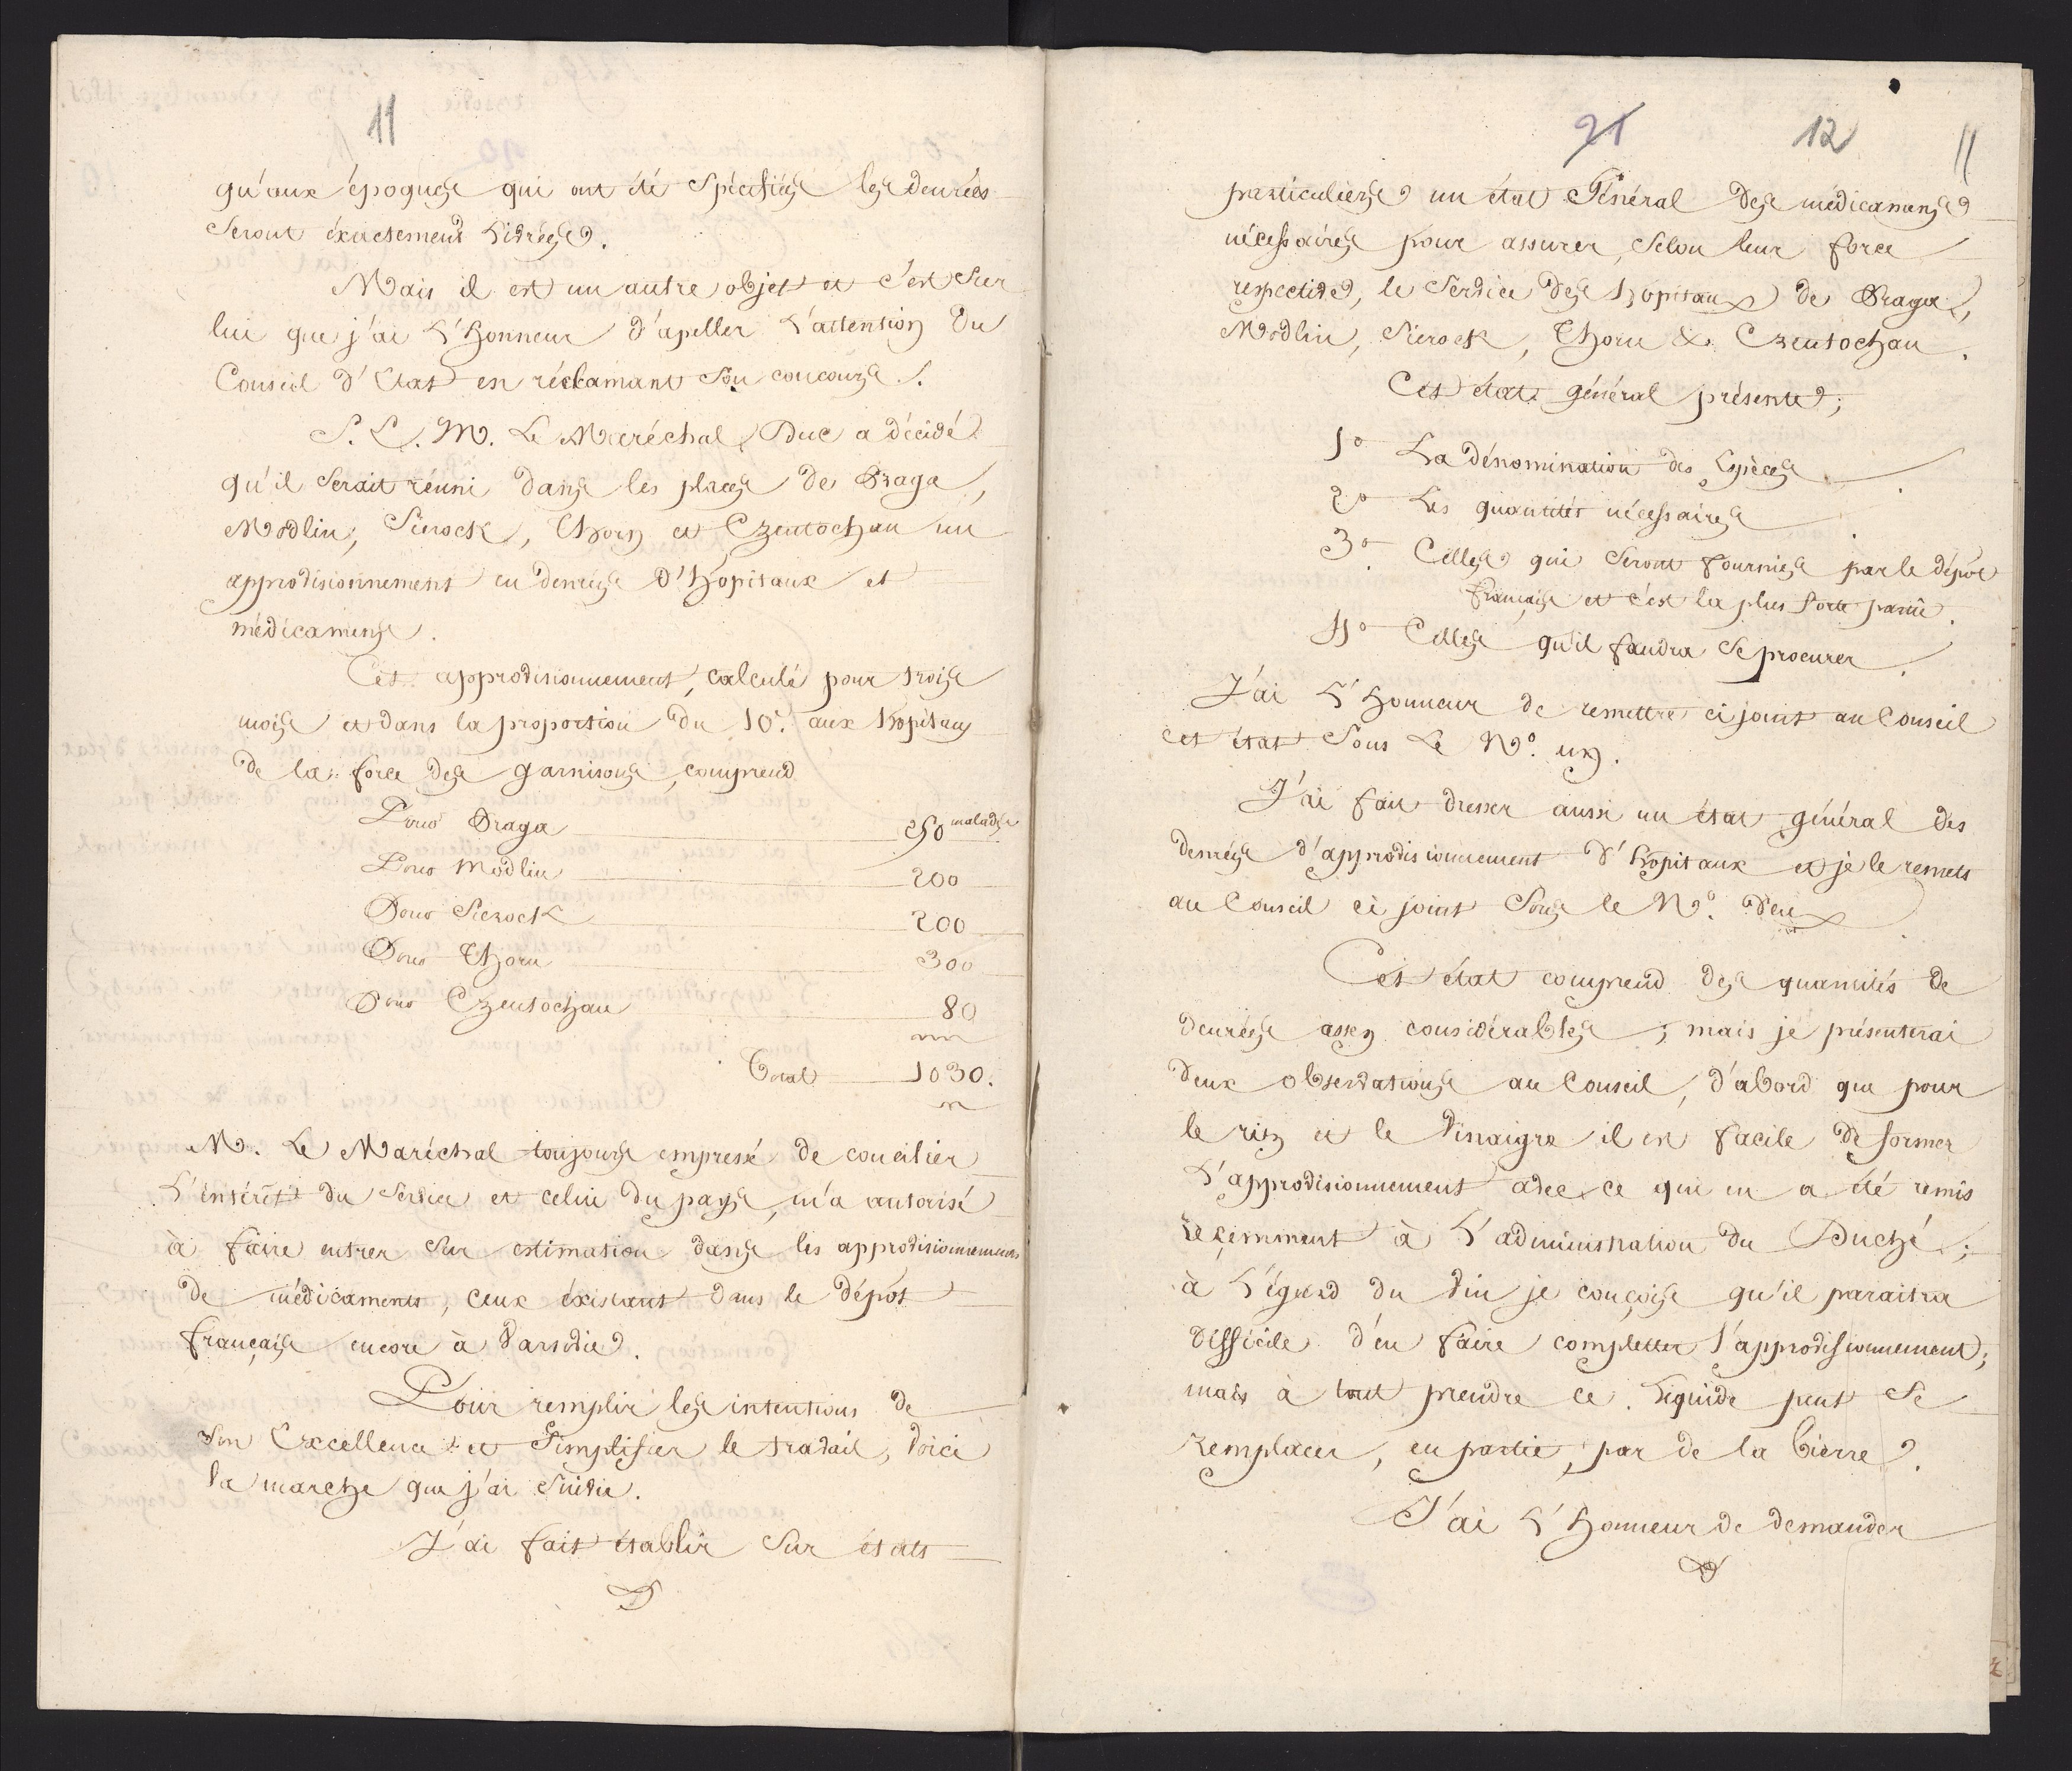 11
qu'aux époques qui ont été spécifiées les denrées
seront éxactement livrées.
Mais il est un autre objet et c'est sur
lui que j'ai l'honneur d'apeller l'attention du
Conseil d'Etat en réclamant son concours.
S. E. M. le Maréchal Duc a décidé
qu'il serait réuni dans les places de Praga,
Modlin, Sierock, Thorn et Czentochau un
approvisionnement en denrées d'hôpitaux et
médicamens.
Cet approvisionnement, calculé pour trois
mois et dans la proportion du 10e. aux hopitaux
de la force des garnisons, comprend
Pour Praga 250 malades
Pour Modlin 200
Pour Sierock 200
Pour Thorn 300
Pour Czentochau 80
Total 1030.
M. le Maréchal toujours empressé de concilier
l'intérêt du service et celui du pays, m'a autorisé
à faire entrer sur estimation dans les approvisionnemens
de médicaments, ceux éxistant dans le dépôt
français encore à Varsovie.
Pour remplir les intentions de
Son Excellence et simplifier le travail, voici
la marche que j'ai suivie.
J'ai fait établir sur états
21 12 11
particuliers un état Général des médicamens
nécessaires pour assurer, selon leur force
respective, le service des hopitaux de Praga,
Modlin, Sierock, Thorn & Czentochau.
Cet état général présente;
1o La dénomination des Espèces
2o Les quantités nécessaires
3o Celles qui seront fournies par le dépôt
français et c'est la plus forte partie.
4o Celles qu'il faudra se procurer.
J'ai l'honneur de remettre ci joint au Conseil
cet état sous le No. un.
J'ai fait dresser aussi un état général des
denrées d'approvisionnement d'hopitaux et je le remets
au Conseil ci joint sous le No. deux.
Cet état comprend des quantités de
denrées assez considérables; mais je présenterai
deux observations au Conseil, d'abord que pour
le riz et le vinaigre il est facile de former
l'approvisionnement avec ce qui en a été remis
récemment à l'administration du Duché;
à l'égard du vin je conçois qu'il paraitra
difficile d'en faire completter l'approvisionnement;
mais à tout prendre ce liquide peut se
remplacer, en partie, par de la bierre.
J'ai l'honneur de demander